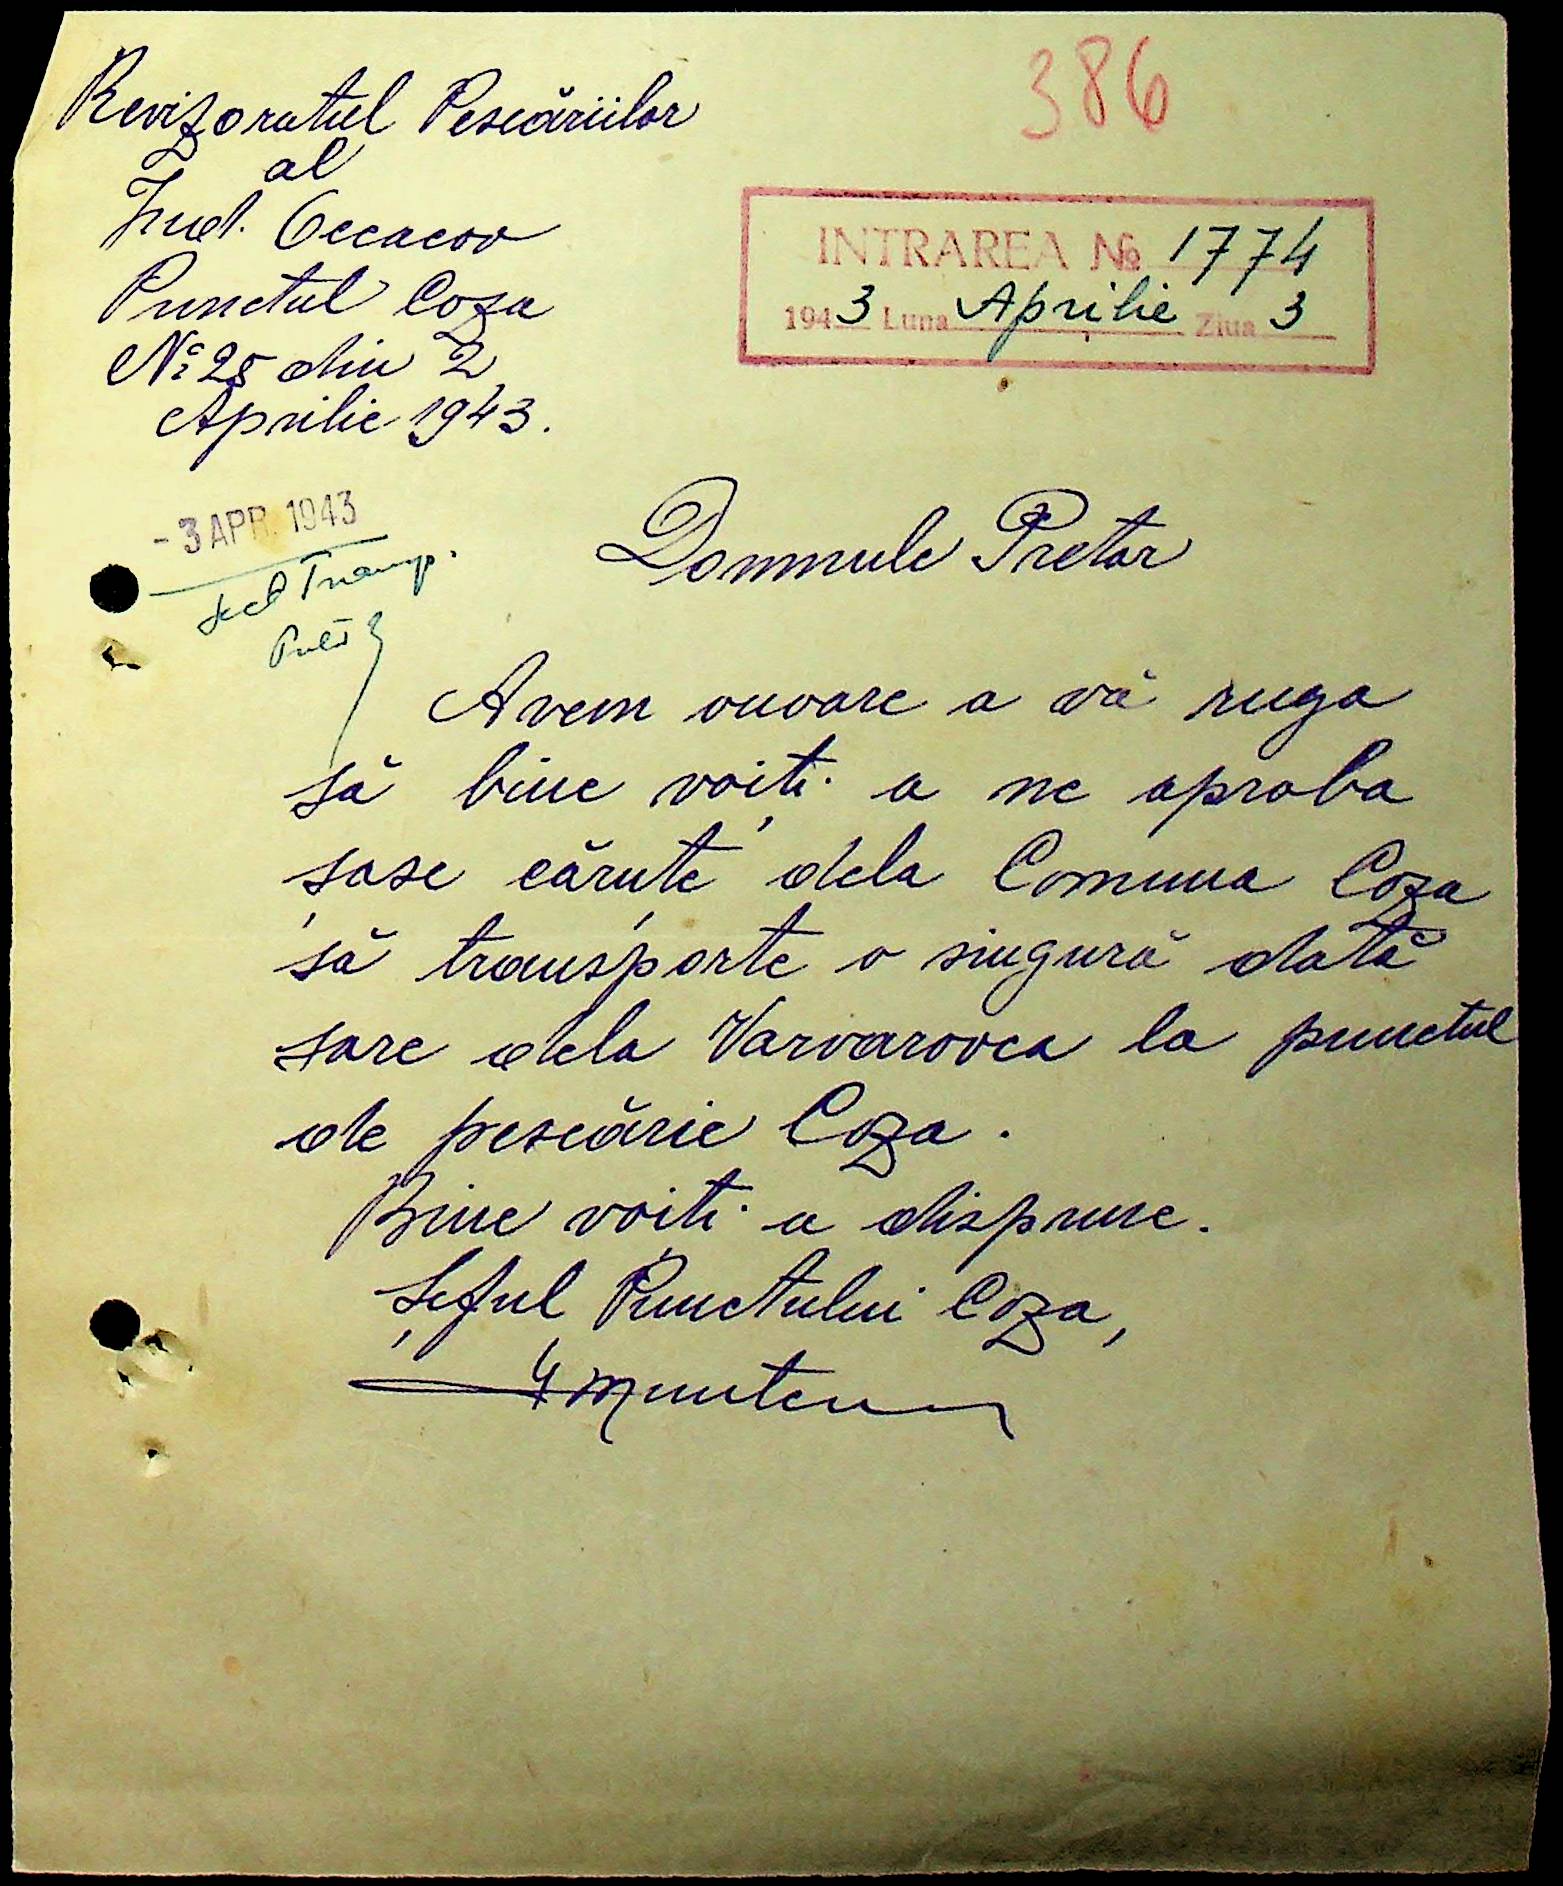 386
Revizoratul Pescăriilor
al
Jud. Oceacov
Punctul Coza
No 25 din 2
Aprilie 1943.
INTRAREA No 1774
1943 Luna Aprilie Ziua 3
- 3 APR. 1943
Domnule Pretor
Avem onoare a vă ruga
să bine voiți a ne aproba
șase căruțe dela Comuna Coza
să transporte o singură dată
sare dela Varvarovca la punctul
de pescărie Coza.
Bine voiți a dispune.
Șeful Punctului Coza,